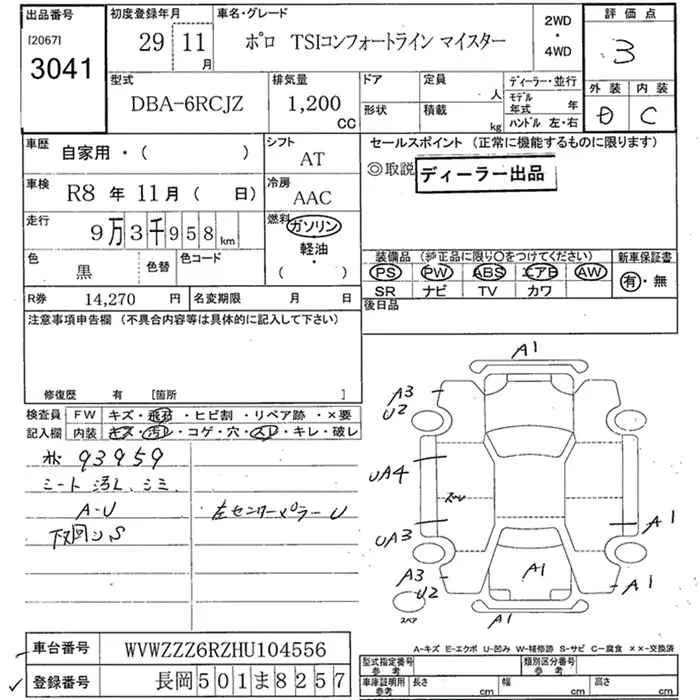 出品番号 初度登録年月 車名・グレード 2WD・4WD 評価点
[2067] 29 11月 ポロ TSIコンフォートライン マイスター 3
3041
型式 排気量 ドア 定員 人 ディーラー・並行 外装 内装
DBA-6RCJZ 1,200 CC 形状 積載 kg モデル年式 年 D C
ハンドル 左・右
車歴 自家用・( ) シフト AT セールスポイント(正常に機能するものに限ります)
◎取説 ディーラー出品
車検 R8年 11月( 日) 冷房 AAC
走行 9万3千958km 燃料 ガソリン
軽油・( )
色 黒 色替 色コード
装備品(純正品に限り○をつけてください) 新車保証書
PS PW ABS エアB AW 有・無
SR ナビ TV カワ
R券 14,270 円 名変期限 月 日 後日品
注意事項申告欄(不具合内容等は具体的に記入して下さい)
修復歴 有 [箇所 ]
検査員 FW キズ・飛石・ヒビ割・リペア跡・×要
記入欄 内装 キズ・汚レ・コゲ・穴・スレ・キレ・破レ
93959
シート 汚レ、シミ、
A-U 左センターピラーU
下回りS
A1
A3
U2
UA4
スレ
UA3
A1
A3
U2
A1
A1
スペア
A1
A-キズ E-エクボ U-凹み W-補修跡 S-サビ C-腐食 ××-交換済
車台番号 WVWZZZ6RZHU104556
型式指定番号 参考 類別区分番号 参考
登録番号 長岡501ま8257
車庫証明用 参考 長さ cm 幅 cm 高さ cm